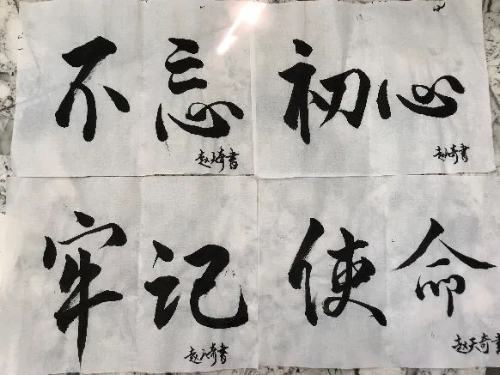 不忘
赵天奇书
初心
赵天奇书
牢记
赵天奇书
使命
赵天奇書